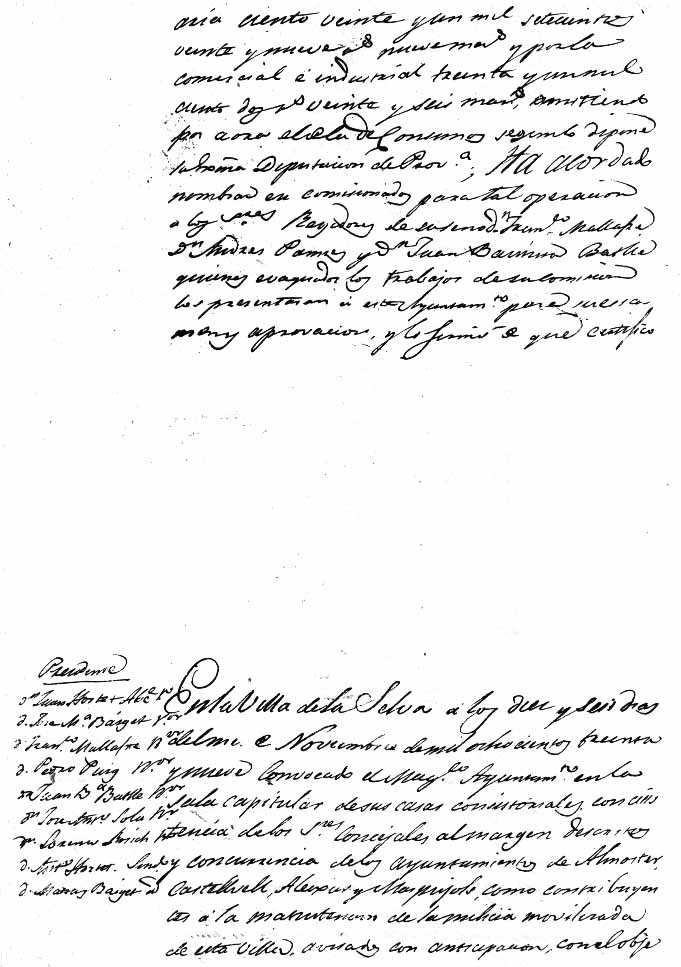 aria ciento veinte y un mil setecientos
veinte y nueve r.s nueve mar.s y por la
comercial é industrial treinta y un mil
ciento dos r.s veinte y seis mar.s, omitiendo
por aora el de la de Consumos segun lo dispone
la Exma Diputacion de Prov.a; Ha acordado
nombrar en comisionados para tal operacion
a los S.res Regidores de su seno d.n Fran.co Mallafré
D.n Andres Pamies y d.n Juan Bautista Batlle
quienes evaquados los trabajos de su comision
los presentaran á este Ayuntam.to para su esa-
men y aprovacion, y lo firmó e que certifico
Presidente
d.n Juan Hortet Alc.e
d. José M.a Baiget R.or
d. Fran.co Mallafré R.or
d. Pedro Puig R.or
d.n Juan B.a Batlle R.or
d.n José Ant.o Sola R.or
d.n Lorenzo R.or
d. Ant.o Hortet Sind.
d. Baiget
En la Villa de la Selva a los diez y seis dias
del mes e Noviembre de mil ochocientos treinta
y nueve Convocado el Mag.co Ayuntam.to en la
sala capitular de sus casas consistoriales, con asis
tencia de los S.res Concejales al margen descritos
y concurrencia de los ayuntamientos de Almoster,
Castellvell, Aleixar y Maspujols, como contribuyen
tes á la manutencion de la milicia movilizada
de esta villa, avisados con anticipacion, con el obje